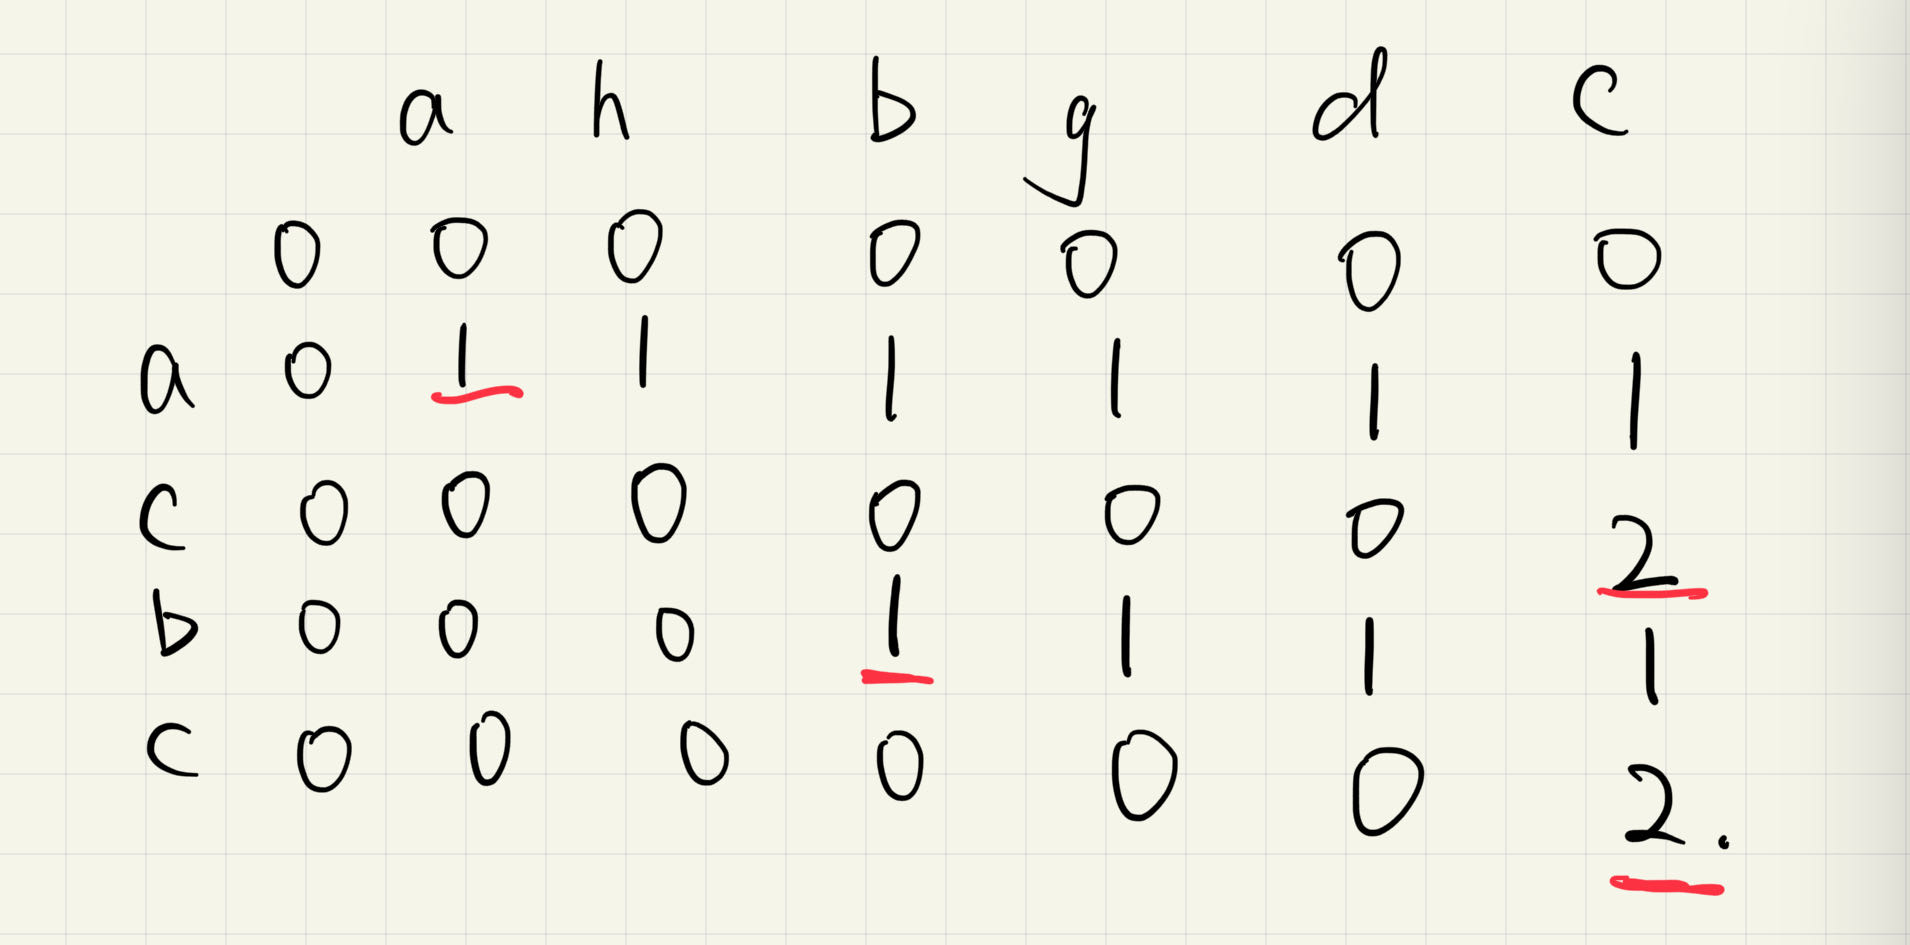 a h b g d c
0 0 0 0 0 0 0
a 0 1 1 1 1 1 1
c 0 0 0 0 0 0 2
b 0 0 0 1 1 1 1
c 0 0 0 0 0 0 2.